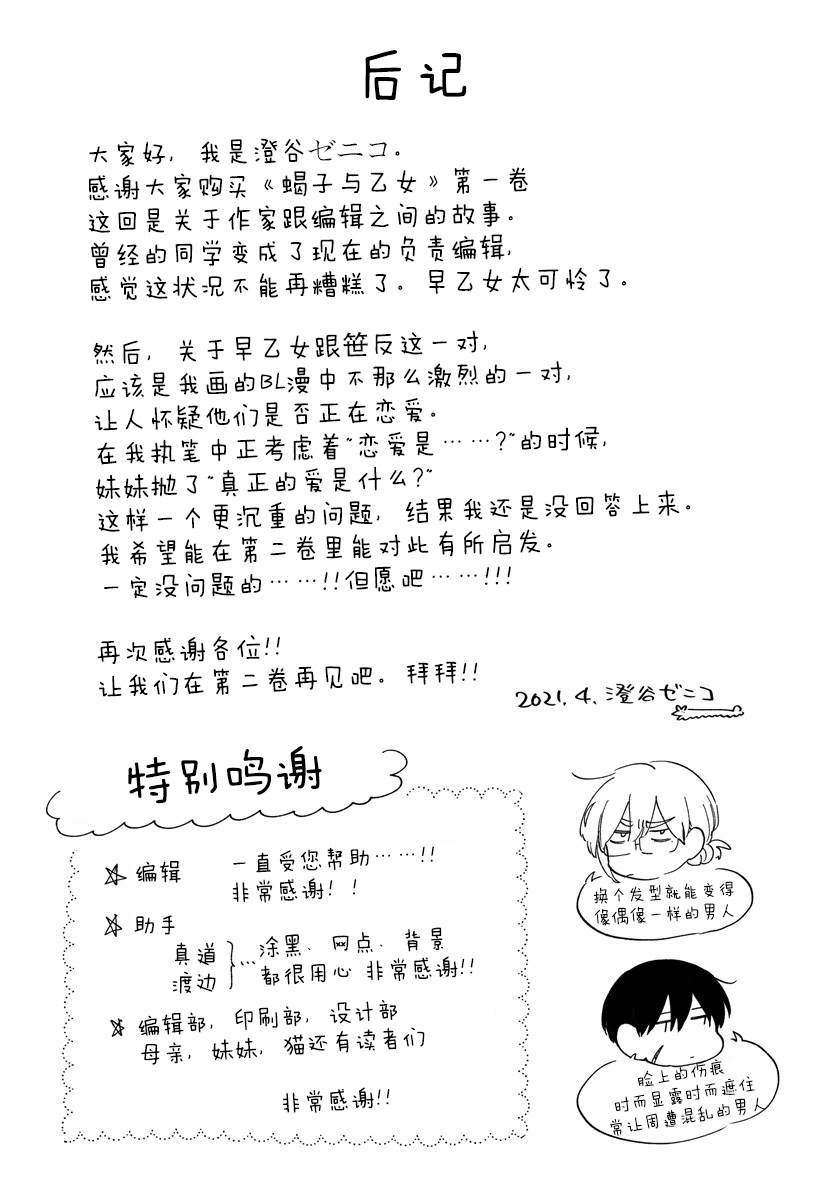 后记
大家好，我是澄谷ゼニコ。
感谢大家购买《蝎子与乙女》第一卷
这回是关于作家跟编辑之间的故事。
曾经的同学变成了现在的负责编辑，
感觉这状况不能再糟糕了。早乙女太可怜了。
然后，关于早乙女跟笹反这一对，
应该是我画的BL漫中不那么激烈的一对，
让人怀疑他们是否正在恋爱。
在我执笔中正考虑着"恋爱是……?"的时候，
妹妹抛了"真正的爱是什么?"
这样一个更沉重的问题，结果我还是没回答上来。
我希望能在第二卷里能对此有所启发。
一定没问题的……!!但愿吧……!!!
再次感谢各位!!
让我们在第二卷再见吧。拜拜!!
2021.4.澄谷ゼニコ
特别鸣谢
☆编辑 一直受您帮助……!!
非常感谢！！
☆助手
真道
渡边
…涂黑、网点、背景
都很用心 非常感谢!!
☆编辑部，印刷部，设计部
母亲，妹妹，猫还有读者们
非常感谢!!
换个发型就能变得
像偶像一样的男人
脸上的伤痕
时而显露时而遮住
常让周遭混乱的男人